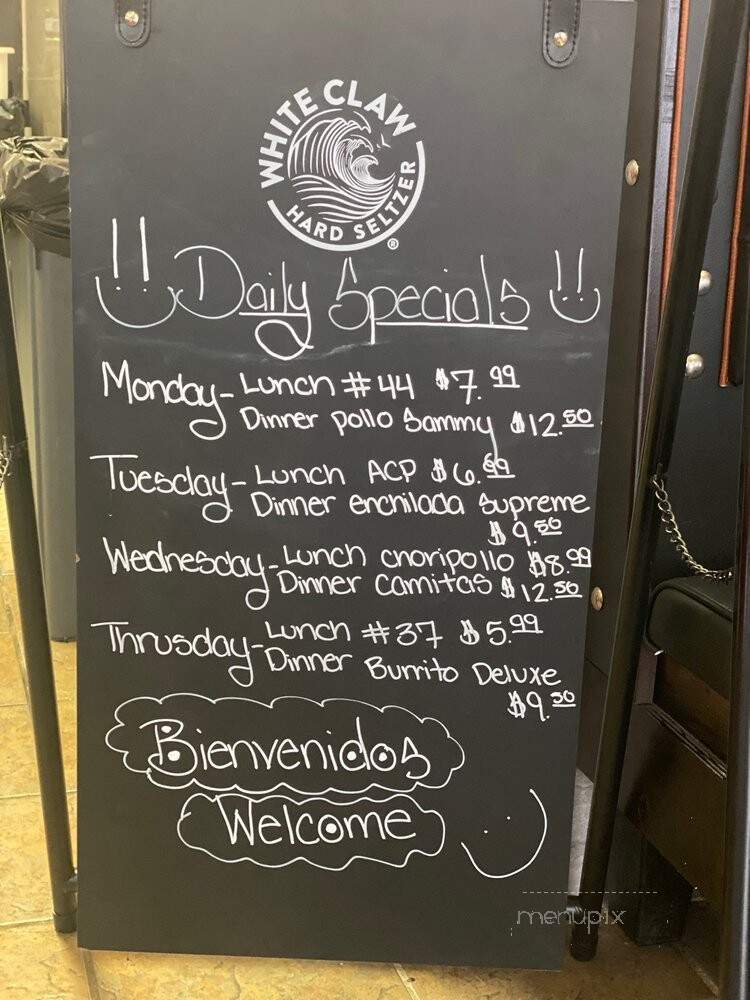 WHITE CLAW
HARD SELTZER
®
Daily Specials
Monday- Lunch #44 $7.99
Dinner pollo Sammy $12.50
Tuesday- Lunch ACP $6.99
Dinner enchilada Supreme
$9.50
Wednesday- Lunch choripollo $8.99
Dinner Carnitas $12.50
Thrusday- Lunch #37 $5.99
Dinner Burrito Deluxe
$9.50
Bienvenidos
Welcome
menupix